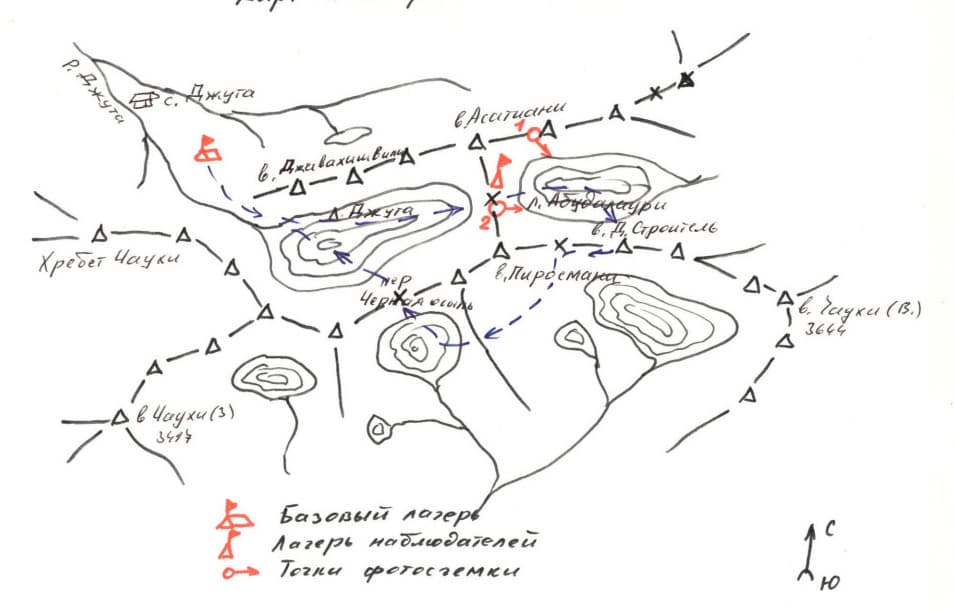 р. Джута
с. Джута
в. Асатиани
1
в. Джавахишвили
л. Джута
л. Абуделаури
2
в. Д. Строитель
Хребет Чауки
в. Пиросмани
пер
Черная осыпь
в. Чаухи (В.)
3644
в Чаухи (З)
3417
Базовый лагерь
Лагерь наблюдателей
Точки фотосъемки
С
Ю